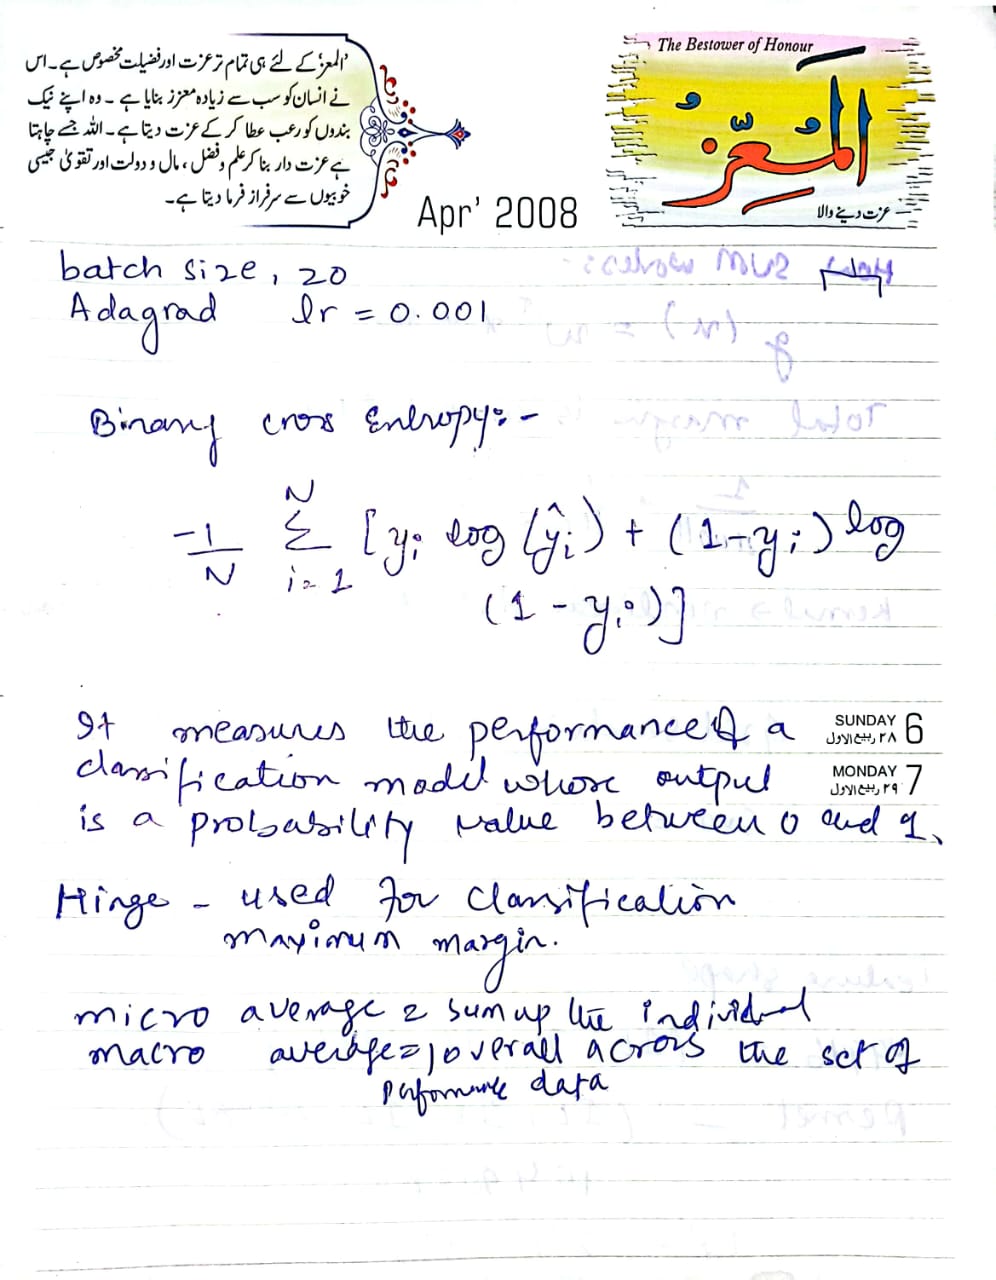 'المعز' کے لئے ہی تمام تر عزت اور فضیلت مخصوص ہے۔ اس
نے انسان کو سب سے زیادہ معزز بنایا ہے۔ وہ اپنے نیک
بندوں کو رعب عطا کر کے عزت دیتا ہے۔ اللہ جسے چاہتا
ہے عزت دار بنا کر علم و فضل، مال و دولت اور تقویٰ جیسی
خوبیوں سے سرفراز فرما دیتا ہے۔
The Bestower of Honour
المعز
عزت دینے والا
Apr' 2008
batch size, 20
Adagrad lr = 0.001
Binary cross Entropy:-
-1/N N Σ i=1 [yi log (ŷi) + (1-yi) log
(1-yi)]
It measures the performance of a
SUNDAY 6
٢٨ ربیع الاول
classification model whose output
MONDAY 7
٢٩ ربیع الاول
is a probability value between 0 and 1.
Hinge - used for classification
maximum margin.
micro average = sum up the individual
macro average = overall across the set of
performance data